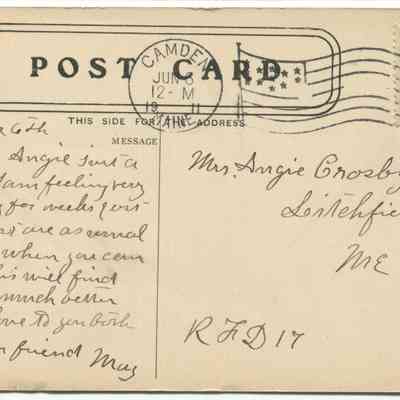 POST CARD
CAMDEN
JUN 6
12-M
19 11
MAINE
THIS SIDE FOR THE ADDRESS
MESSAGE
6th
Angie just a
I am feeling very
for weeks
are as usual
when you can
his will find
much better
love to you both
friend May
Mrs. Angie Crosby
Litchfie
ME
RFD 17